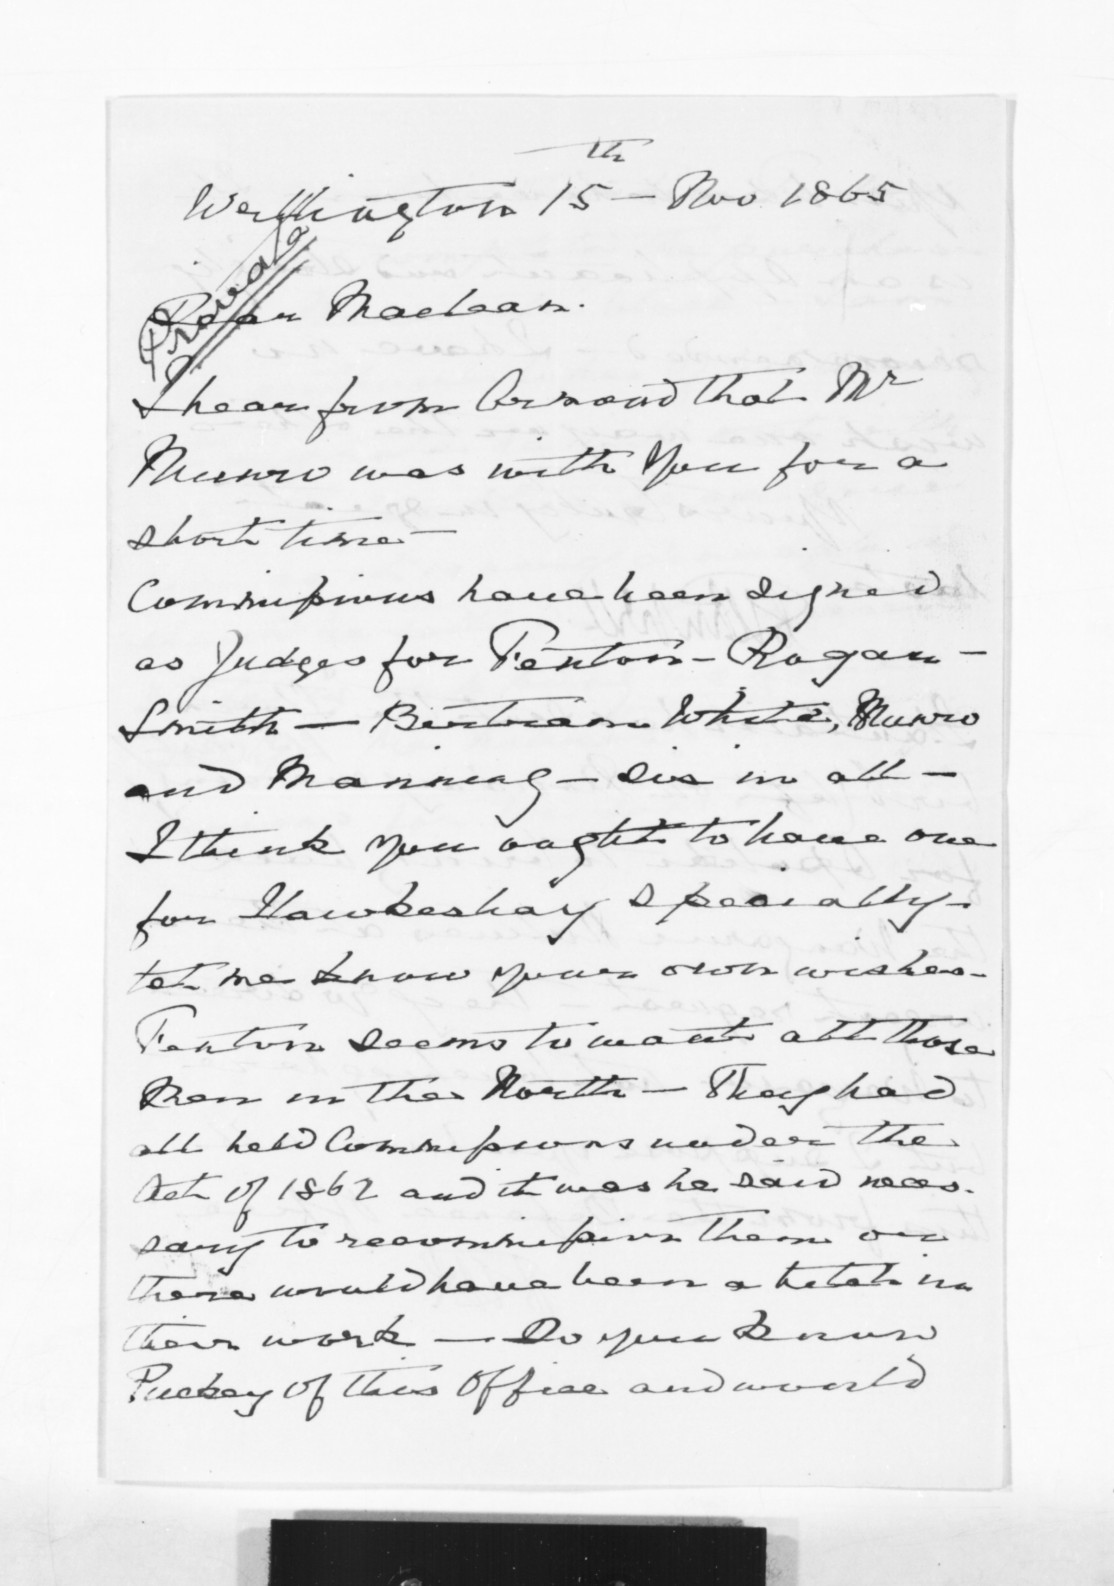 Wellington 15th - Nov 1865
Private
Dear Maclean.
I hear from Ormond that Mr
Munro was with you for a
short time -
Commissions have been signed
as Judges for Fenton - Rogan -
Smith - Bertram White, Munro
and Manning - Six in all -
I think you ought to have one
for Hawkes bay specially -
let me know your own wishes -
Fenton seems to want all those
Men in the North - They had
all held Commissions under the
Act of 1862 and it was he said neces.
sary to recommission them or
there would have been a hitch in
their work - Do you know
Puckey of this Office and would